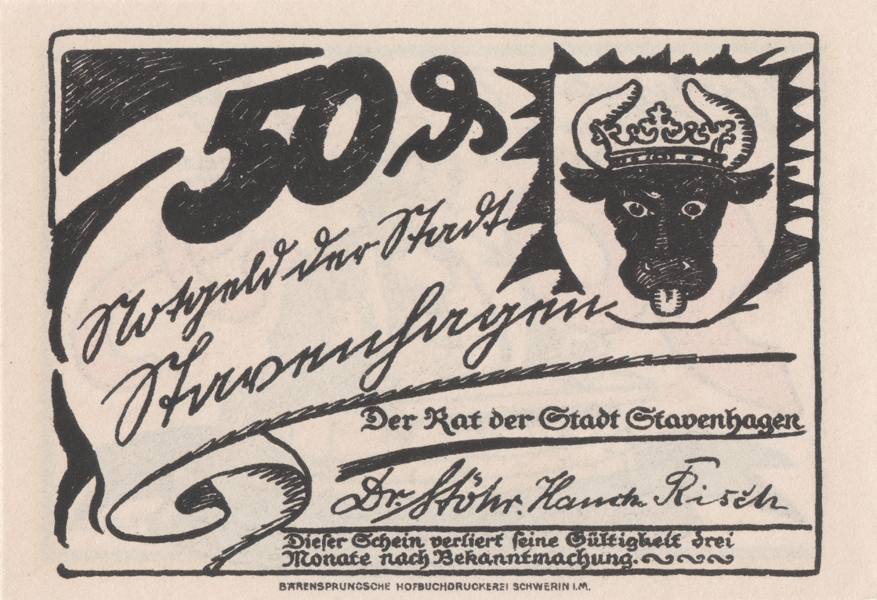 50 ₰
Notgeld der Stadt
Stavenhagen
Der Rat der Stadt Stavenhagen
Dr. Stöhr. Risch
Dieser Schein verliert seine Gültigkeit drei
Monate nach Bekanntmachung.
BÄRENSPRUNGSCHE HOFBUCHDRUCKEREI SCHWERIN I.M.